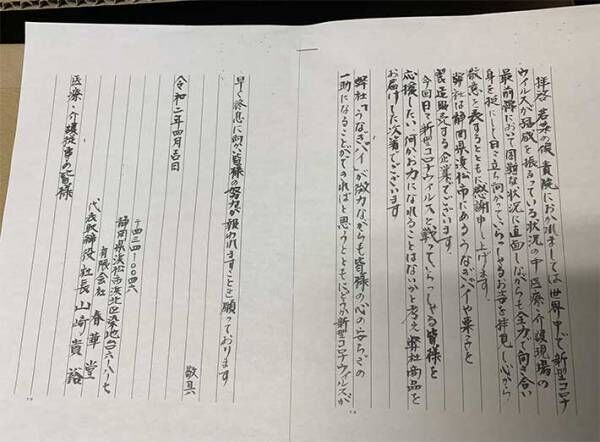 拝啓 若葉の候 貴院におかれましては世界中で新型コロナ
ウイルスが猛威を振るっている状況の中医療・介護現場の
最前線において困難な状況に直面しながらも全力で向き合い
身を挺にして日々立ち向かっていらっしゃるお姿を拝見し心から
敬意を表するとともに感謝申し上げます。
弊社は静岡県浜松市にあるうなぎパイや菓子を
製造販売する企業でございます。
今回日々新型コロナウィルスと戦っていらっしゃる皆様を
応援したい何かお力になれることはないかと考え弊社商品を
お届けした次第でございます
弊社"うなぎパイ"が微力ながらも皆様の心の安らぎの
一助になることができればと思うとともにどうか新型コロナウイルスが
早く終息に向かい皆様の努力が報われますことを願っております
敬具
令和二年四月吉日
〒四三四-〇〇四六
静岡県浜松市浜北区染地台六-八-七
有限会社 春華堂
代表取締役社長 山崎貴裕
医療・介護従事の皆様